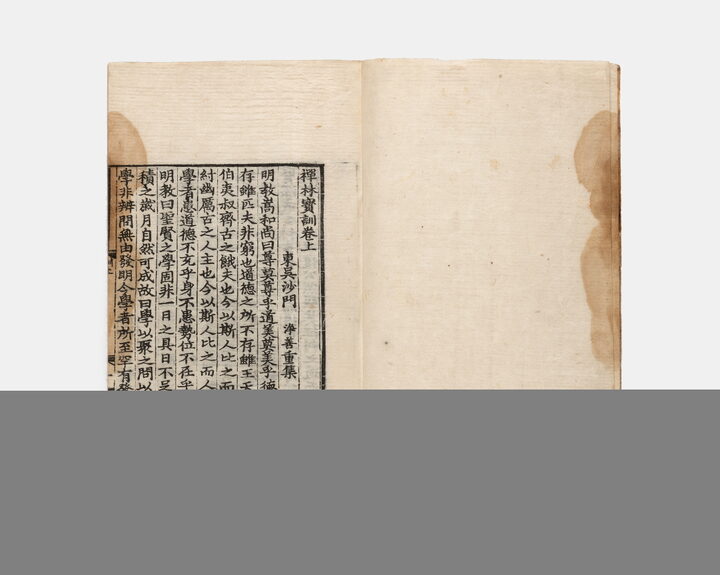 禪林寶訓卷上
東吳沙門 淨善重集
明教嵩和尚曰尊莫尊乎道美莫美乎德
存雖匹夫非窮也道德之所不存雖王天
伯夷叔齊古之餓夫也今以斯人比之而
紂幽厲古之人主也今以斯人比之而人
學者患道德不充乎身不患勢位不在乎
明教曰聖賢之學固非一日之具日不足
積之歲月自然可成故曰學以聚之問以
學非辨問無由發明今學者所至罕有發